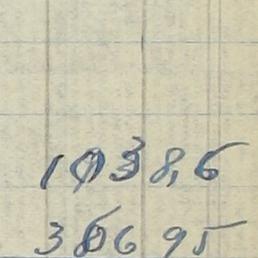 1038,6
386695